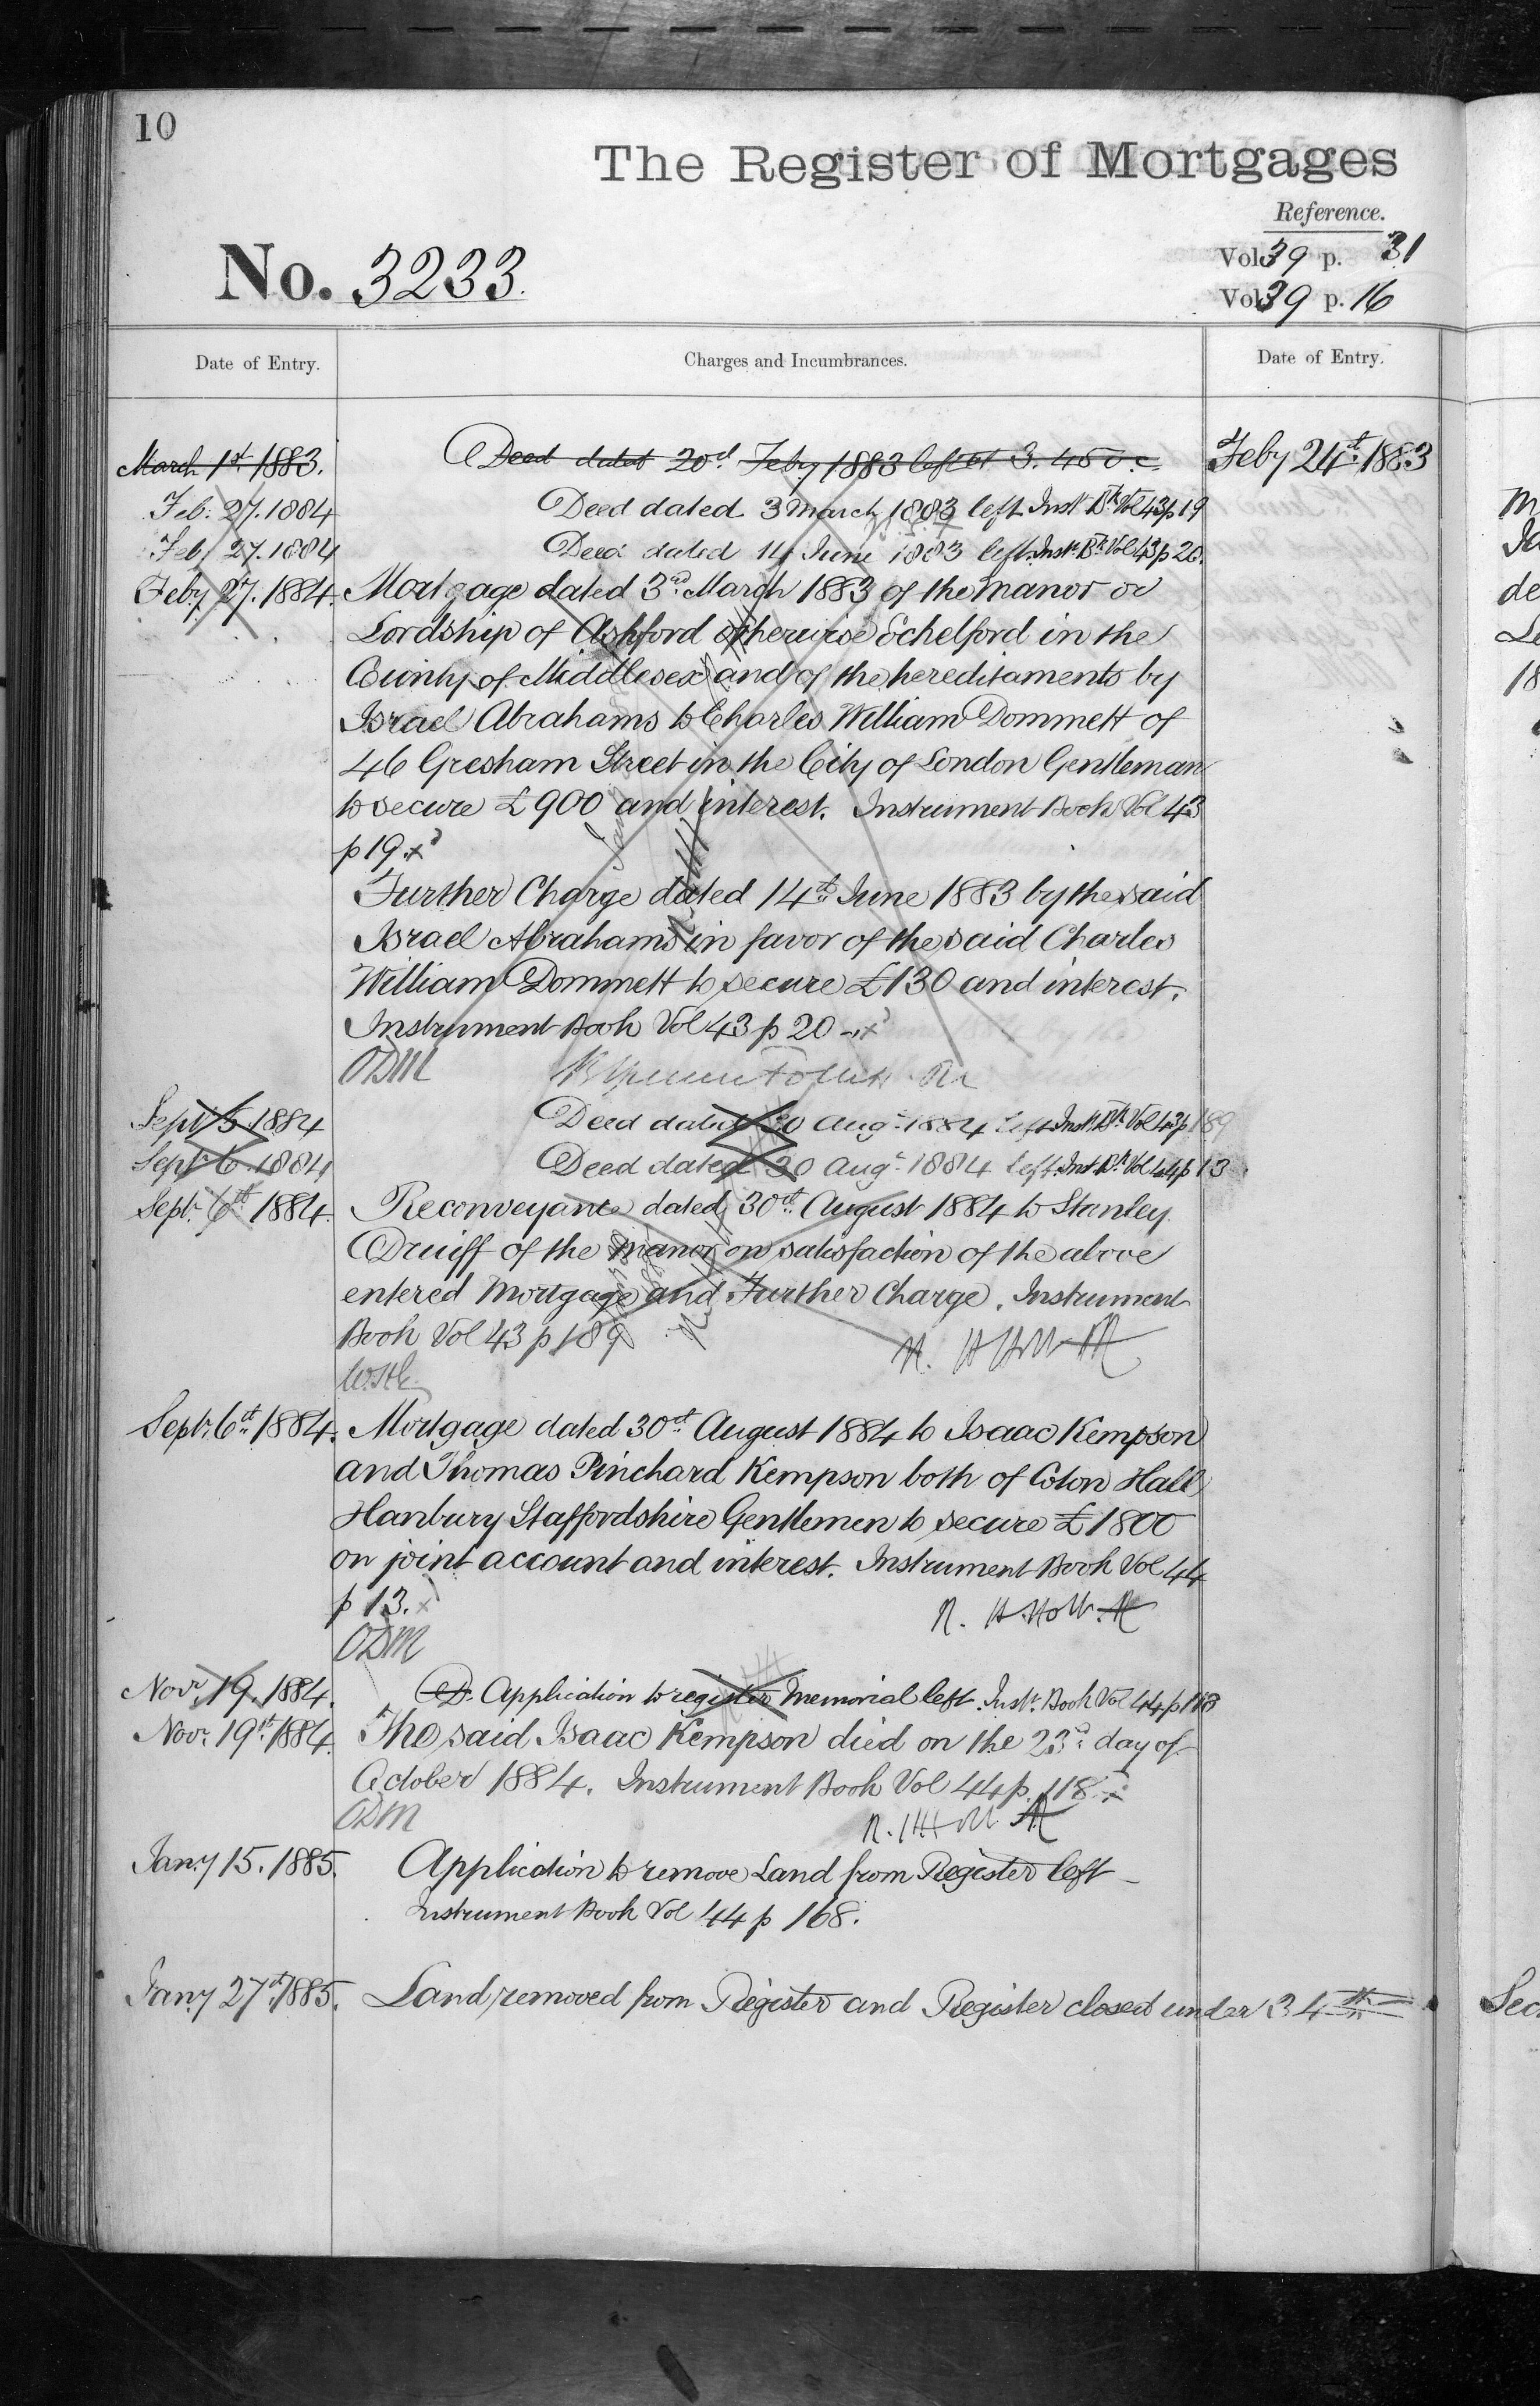 10
The Register of Mortgages
Reference.
Vol 39 p. 31
No. 3233.
Vol 39 p. 16
Date of Entry.
Charges and Incumbrances.
Date of Entry.
March 1st 1883.
Deed dated 20th Feby 1883 left at 3.45
Feby 24th 1883
Feb. 27. 1884
Deed dated 3 March 1883 left Inst Bk Vol 43 p 19
Feb. 27. 1884
Deed dated 14 June 1883 left Inst Bk Vol 43 p 20.
Feby 27. 1884.
Mortgage dated 3rd March 1883 of the Manor or
Lordship of Ashford otherwise Echelford in the
County of Middlesex and of the hereditaments by
Israel Abrahams to Charles William Dommett of
46 Gresham Street in the City of London Gentleman
to secure £900 and interest. Instrument Book Vol 43
p 19.
Further Charge dated 14th June 1883 by the said
Israel Abrahams in favor of the said Charles
William Dommett to secure £130 and interest.
Instrument Book Vol 43 p 20
ODM
Sept 5. 1884
Deed dated 30 Augt 1884 left Inst Bk Vol 43 p 189
Sept 6. 1884
Deed dated 30 Augt 1884 left Inst Bk Vol 44 p 13
Sept. 6th 1884.
Reconveyance dated 30th August 1884 to Stanley
Druiff of the Manor on satisfaction of the above
entered Mortgage and Further Charge. Instrument
Book Vol 43 p 189
Sept. 6th 1884.
Mortgage dated 30th August 1884 to Isaac Kempson
and Thomas Pinchard Kempson both of Coton Hall
Hanbury Staffordshire Gentlemen to secure £1800
on joint account and interest. Instrument Book Vol 44
p 13.
R. H. Holt
ODM
Novr. 19. 1884.
Application to register Memorial left. Inst. Book Vol 44 p 118
Novr. 19th 1884.
The said Isaac Kempson died on the 23rd day of
October 1884. Instrument Book Vol 44 p. 118
ODM
Jany 15. 1885.
Application to remove Land from Register left
Instrument Book Vol 44 p 168.
Jany 27th 1885.
Land removed from Register and Register closed under 34